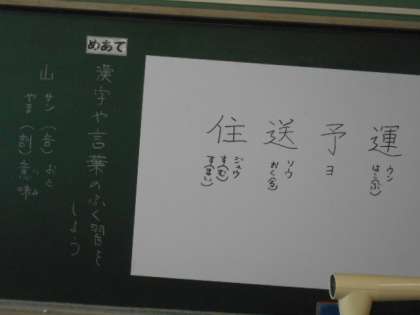 運
ウン
はこ(ぶ)
予
ヨ
送
ソウ
おく(る)
住
ジュウ
す(む)
すまい
めあて
漢字や言葉のふく習を
しよう
山 サン(音)おと
やま(訓)意味